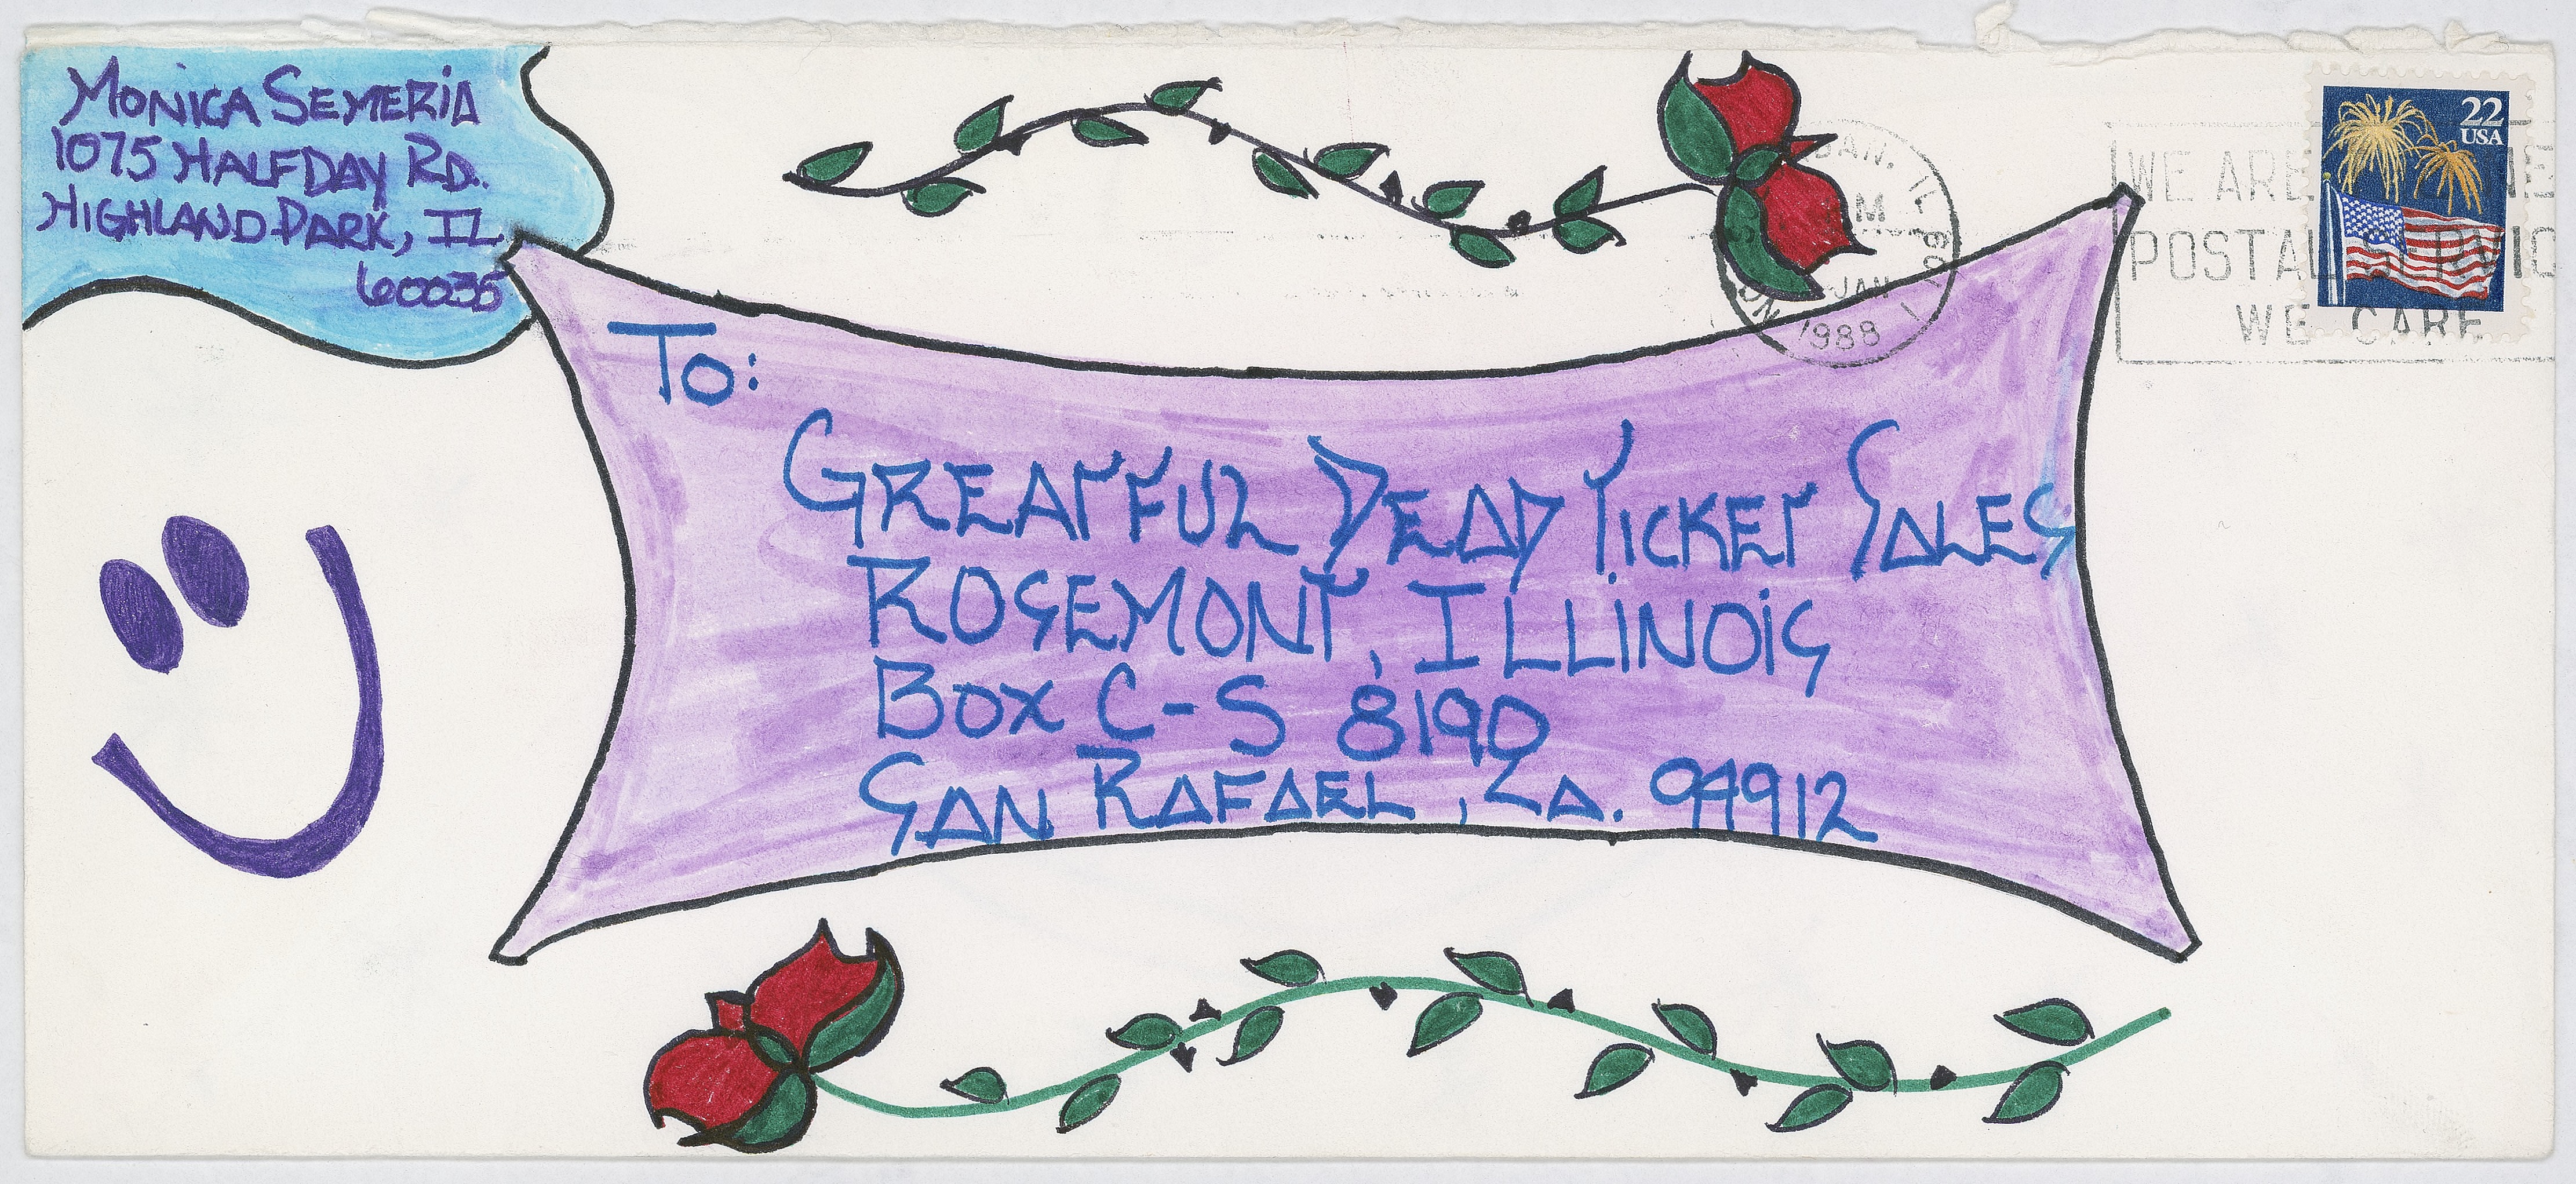 MONICA SEMERIA
1075 HALFDAY RD.
HIGHLAND PARK, IL
60035
22
USA
JAN. IL P
M
JAN
1988
WE ARE
POSTAL
WE CARE
TO:
GREATFUL DEAD TICKET SALES
ROSEMONT, ILLINOIS
BOX C-S 8190
SAN RAFAEL, CA. 94912